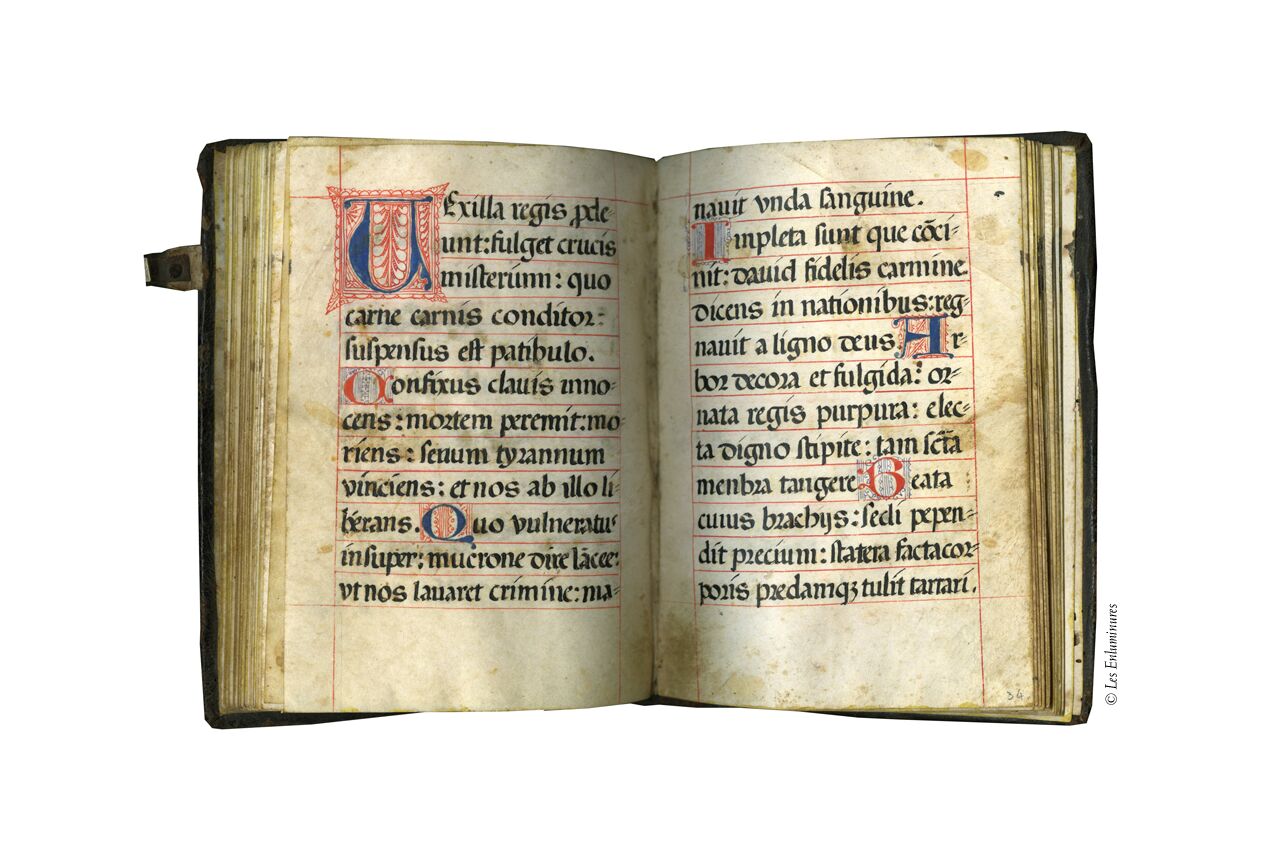 UExilla regis ꝓde-
unt: fulget crucis
misterium: quo
carne carnis conditor:
suspensus est patibulo.
Confixus clauis inno-
cens: mortem peremit: mo-
riens: seuum tyrannum
vinciens: et nos ab illo li-
berans. Quo vulneratus
insuper: mucrone dire lācee:
vt nos lauaret crimine: ma-
nauit vnda sanguine.
Inpleta sunt que cōci-
nit: dauid fidelis carmine.
dicens in nationibus: reg-
nauit a ligno deus Ar-
bor decora et fulgida: or-
nata regis purpura: elec-
ta digno stipite: tam sc̄ta
menbra tangere Beata
cuius brachijs: secli pepen-
dit precium: statera facta cor-
poris predamqꝫ tulit tartari.
34
© Les Enluminures